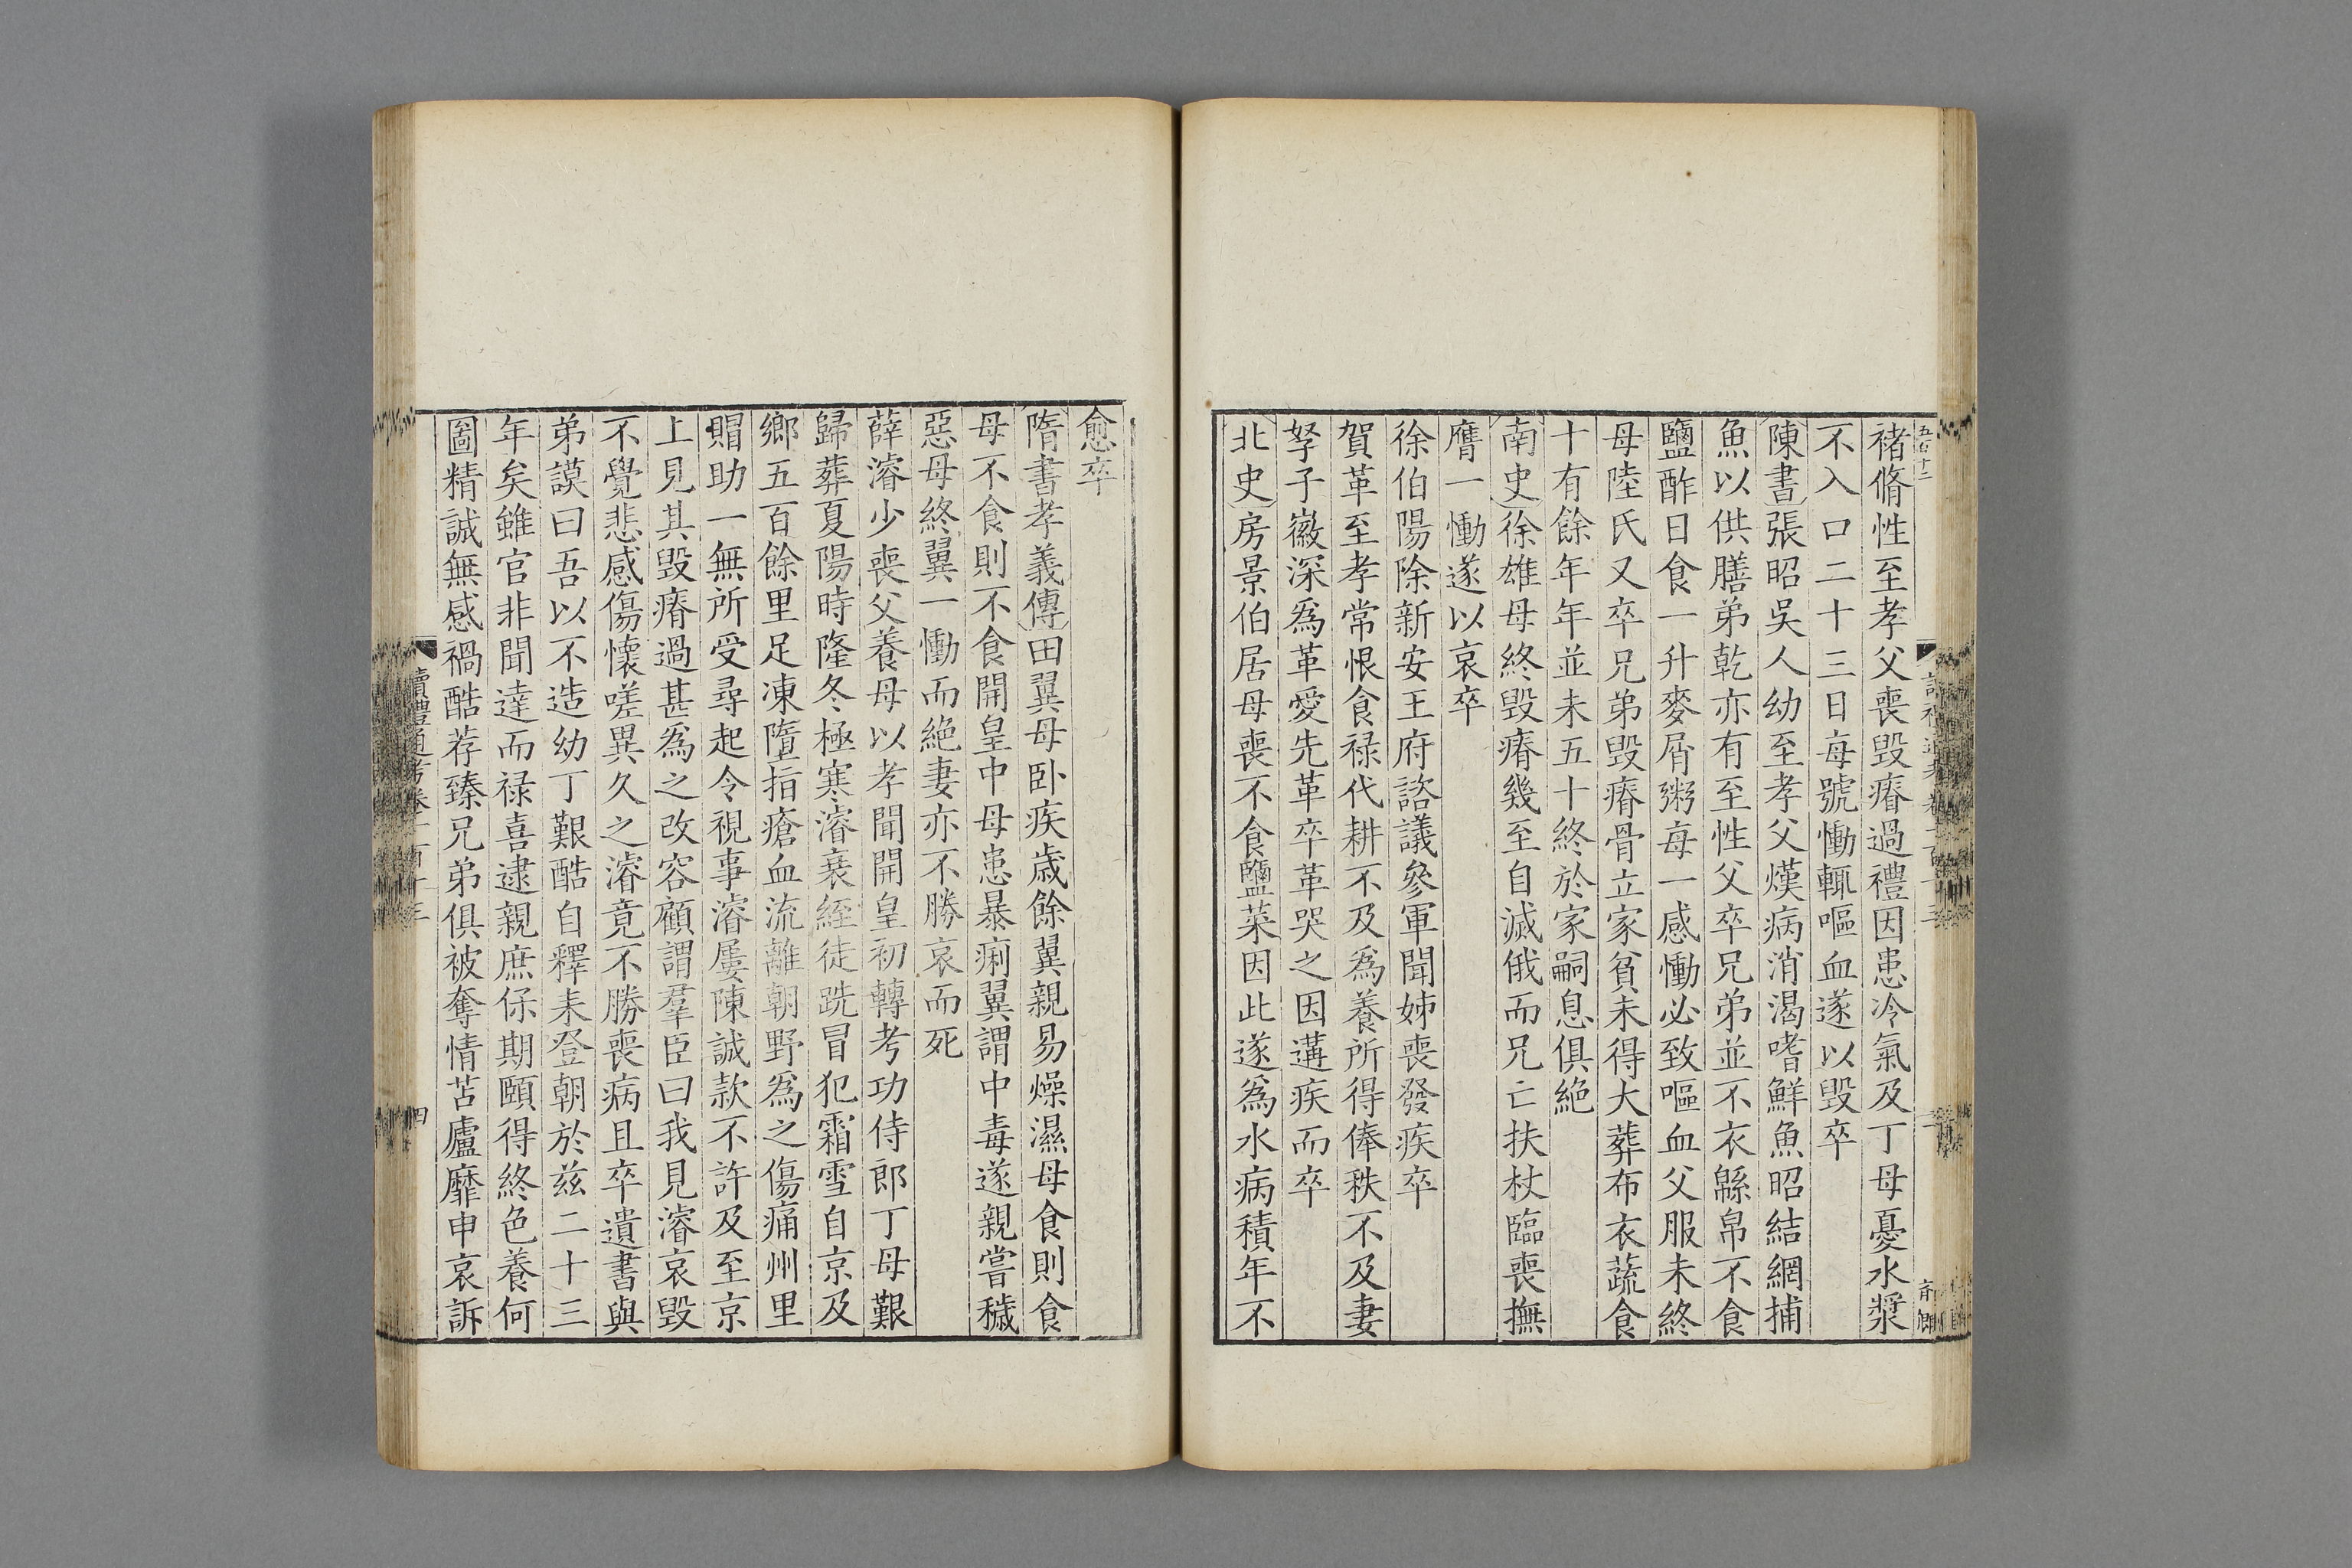 褚脩性至孝父喪毀瘠過禮因患冷氣及丁母憂水漿
不入口二十三日每號慟輒嘔血遂以毀卒
陳書張昭吳人幼至孝父熯病消渴嗜鮮魚昭結網捕
魚以供膳弟乾亦有至性父卒兄弟並不衣緜帛不食
鹽酢日食一升麥屑粥每一感慟必致嘔血父服未終
母陸氏又卒兄弟毀瘠骨立家貧未得大葬布衣蔬食
十有餘年年並未五十終於家嗣息俱絶
南史徐雄母終毀瘠幾至自滅俄而兄亡扶杖臨喪撫
膺一慟遂以哀卒
徐伯陽除新安王府諮議參軍聞姊喪發疾卒
賀革至孝常恨食禄代耕不及為養所得俸秩不及妻
孥子徽深為革愛先革卒革哭之因遘疾而卒
北史房景伯居母喪不食鹽菜因此遂為水病積年不
愈卒
隋書孝義傳田翼母卧疾歳餘翼親易燥濕母食則食
母不食則不食開皇中母患暴痢翼謂中毒遂親嘗穢
惡母終翼一慟而絶妻亦不勝哀而死
薛濬少喪父養母以孝聞開皇初轉考功侍郎丁母艱
歸葬夏陽時隆冬極寒濬衰絰徒跣冒犯霜雪自京及
鄉五百餘里足凍墮指瘡血流離朝野為之傷痛州里
賵助一無所受尋起令視事濬屢陳誠款不許及至京
上見其毀瘠過甚為之改容顧謂羣臣曰我見濬哀毀
不覺悲感傷懷嗟異久之濬竟不勝喪病且卒遺書與
弟謨曰吾以不造幼丁艱酷自釋耒登朝於兹二十三
年矣雖官非聞達而禄喜逮親庶保期頤得終色養何
圖精誠無感禍酷荐臻兄弟俱被奪情苫廬靡申哀訴
讀禮通考卷一百十三
四